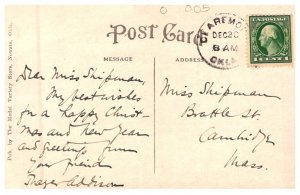 0 005
Post Card
CLAREMORE
DEC 20
8 AM
OKLA.
MESSAGE.
ADDRESS.
1 CENT 1
Pub. by The Model Variety Store, Nowata, Okla.
Dear Miss Shipman,
My best wishes
for a happy Christ-
mas and New Year
and greeting from
your friend
Thayer Addison
Miss Shipman
Brattle St.
Cambridge
Mass.